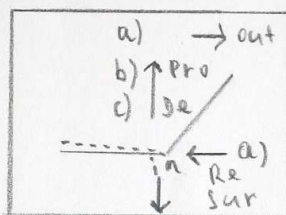 a) → out
b) ↑ Pro
c) De
in ← a)
Re
Sur